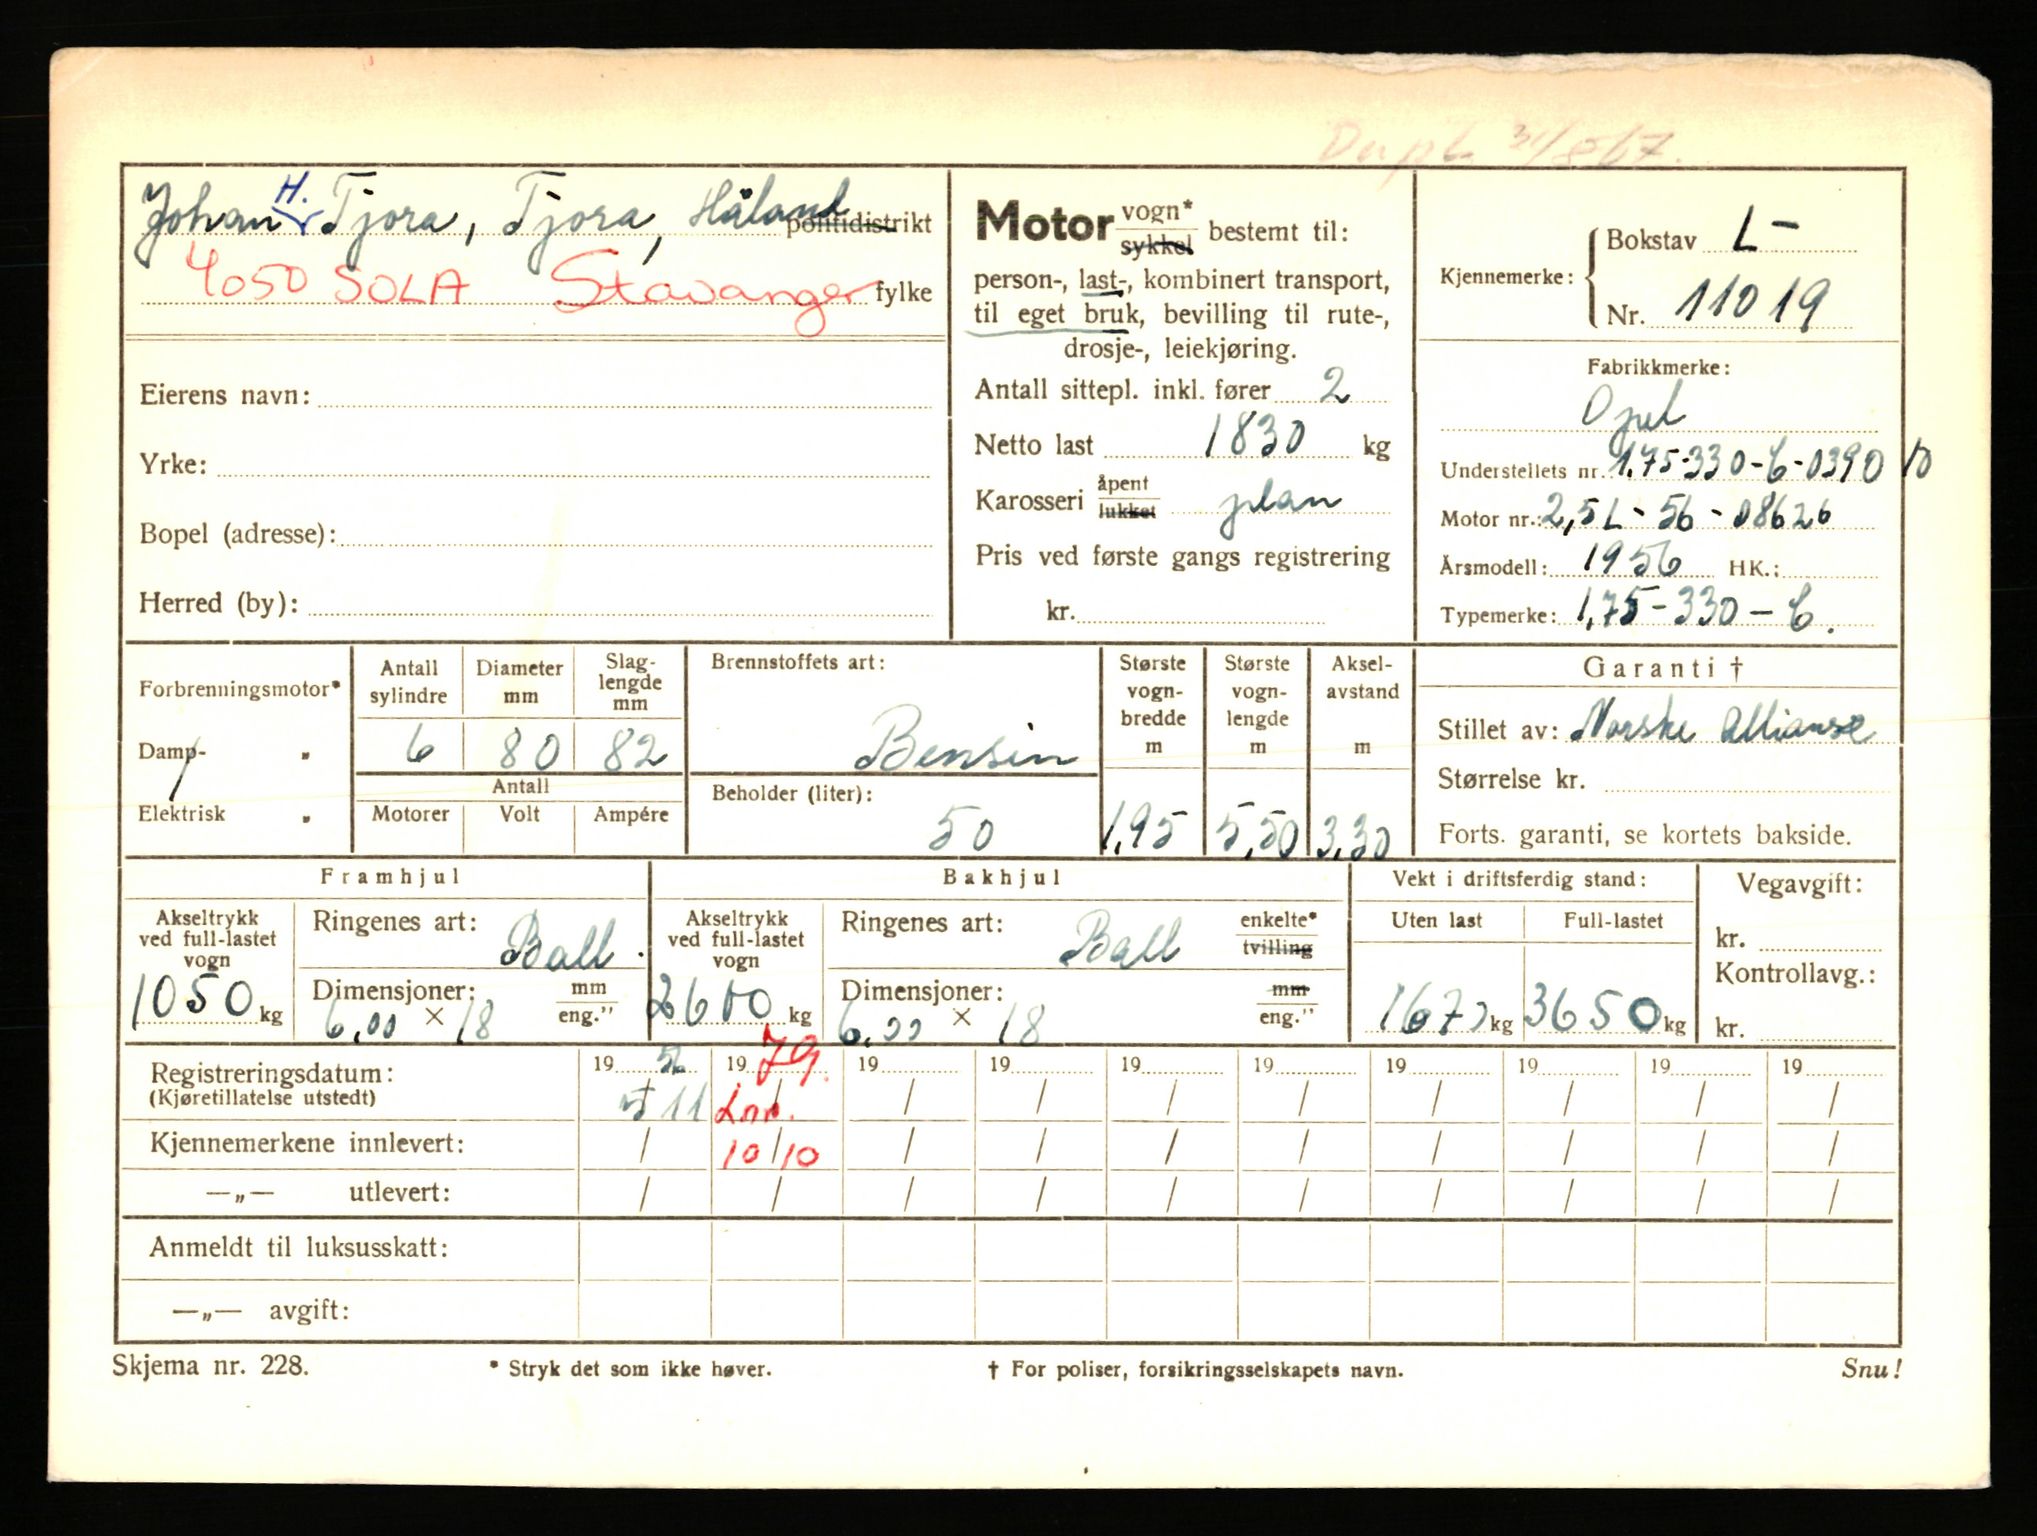 Dupl. 31/8 67.
Johan H. Tjora, Tjora, Håland politidistrikt
4050 SOLA Stavanger fylke
Eierens navn:
Yrke:
Bopel (adresse):
Herred (by):
Motor vogn* sykkel bestemt til:
person-, last-, kombinert transport,
til eget bruk, bevilling til rute-,
drosje-, leiekjøring.
Antall sittepl. inkl. fører 2
Netto last 1830 kg
Karosseri åpent lukket plan
Pris ved første gangs registrering
kr.
Kjennemerke: Bokstav L-
Nr. 11019
Fabrikkmerke:
Opel
Understellets nr.: 1,75-330-6-0390 10
Motor nr.: 2,5L-56-08626
Årsmodell: 1956 HK.:
Typemerke: 1,75-330-6.
Forbrenningsmotor*
Damp- "
Elektrisk "
Antall sylindre Diameter mm Slag-lengde mm
6 80 82
Antall
Motorer Volt Ampére
Brennstoffets art:
Bensin
Beholder (liter):
50
Største vogn-bredde m
1,95
Største vogn-lengde m
5,50
Aksel-avstand m
3,30
Garanti †
Stillet av: Norske Allianse
Størrelse kr.
Forts. garanti, se kortets bakside.
Framhjul
Akseltrykk ved full-lastet vogn
1050 kg
Ringenes art: Ball.
Dimensjoner: mm eng."
6,00 × 18
Bakhjul
Akseltrykk ved full-lastet vogn
2600 kg
Ringenes art: Ball enkelte* tvilling
Dimensjoner: mm eng."
6,00 × 18
Vekt i driftsferdig stand:
Uten last Full-lastet
1670 kg 3650 kg
Vegavgift:
kr.
Kontrollavg.:
kr.
Registreringsdatum: 19 19 79. 19 19 19 19 19 19 19 19
(Kjøretillatelse utstedt) 5/11 / / / / / / / / /
Kjennemerkene innlevert: / 10/10 / / / / / / / /
—„— utlevert: / / / / / / / / / /
Anmeldt til luksusskatt:
—„— avgift:
Skjema nr. 228. * Stryk det som ikke høver. † For poliser, forsikringsselskapets navn. Snu!